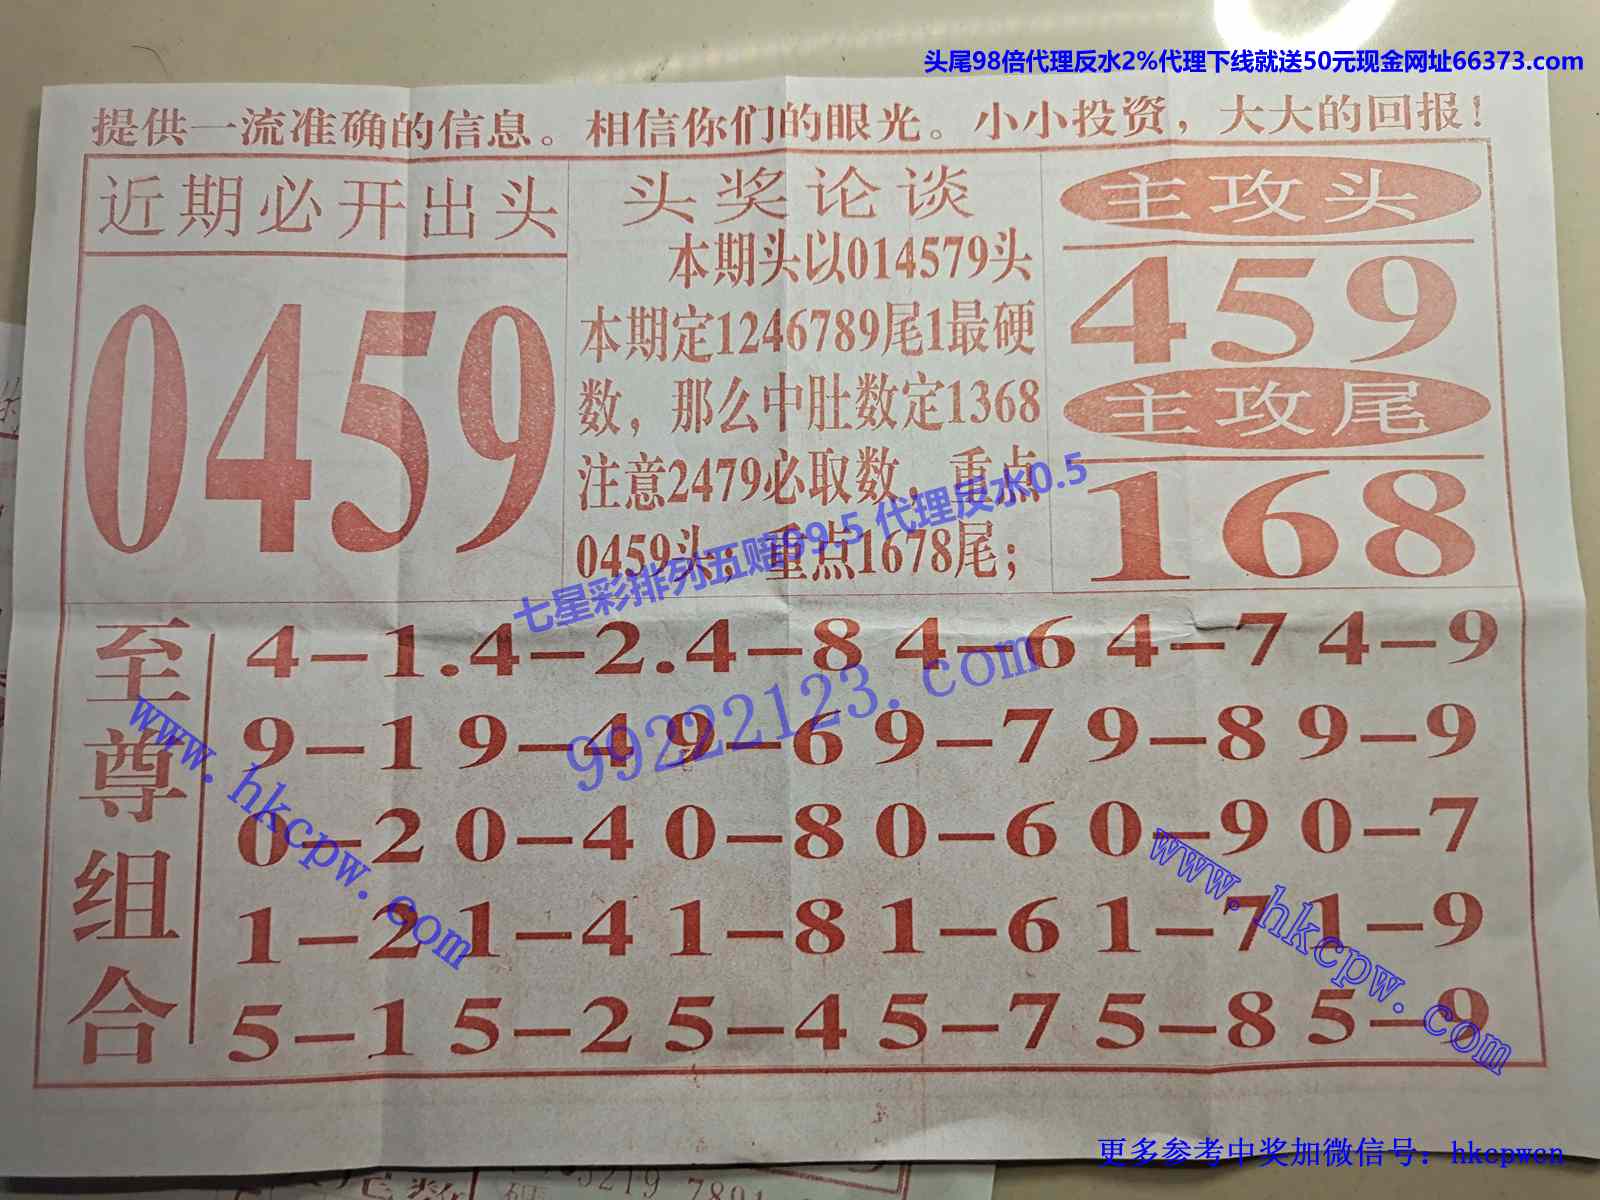 头尾98倍代理反水2%代理下线就送50元现金网址66373.com
提供一流准确的信息。相信你们的眼光。小小投资，大大的回报！
近期必开出头
0459
头奖论谈
本期头以014579头
本期定1246789尾1最硬
数，那么中肚数定1368
注意2479必取数，重点
0459头；重点1678尾；
主攻头
459
主攻尾
168
七星彩排列五赔99.5 代理反水0.5
99222123.com
至尊组合
4－1.4－2.4－8 4－6 4－7 4－9
9－1 9－4 9－6 9－7 9－8 9－9
0－2 0－4 0－8 0－6 0－9 0－7
1－2 1－4 1－8 1－6 1－7 1－9
5－1 5－2 5－4 5－7 5－8 5－9
www.hkcpw.com
www.hkcpw.com
更多参考中奖加微信号：hkcpwcn
尾数
3219 7891